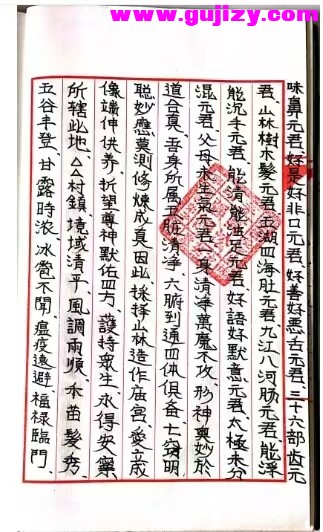 www.gujizy.com
味鼻元君、好是好非口元君、好善好恶舌元君、三十六部齿元
君、山林樹木髪元君、五湖四海肚元君、九江八河肠元君、能浮
能沉手元君、能清能浊足元君、好語好默意元君、太極未分
混元君、父母未生氣元君、一身清淨萬魔不攻、形神與妙於
道合真、吾身所属、五脏清净、六腑到通四体俱备、七窍明
聪妙應莫测修煉成真因此採择山林造作庙宫、爱立成
像端伸供养、祈望尊神默佑四方、護持眾生永得安寧
所辖此地、△△村鎮、境域清平、風調雨顺、禾苗發秀、
五谷丰登、甘露時浓、冰雹不聞、瘟疫遠避、福禄臨門、